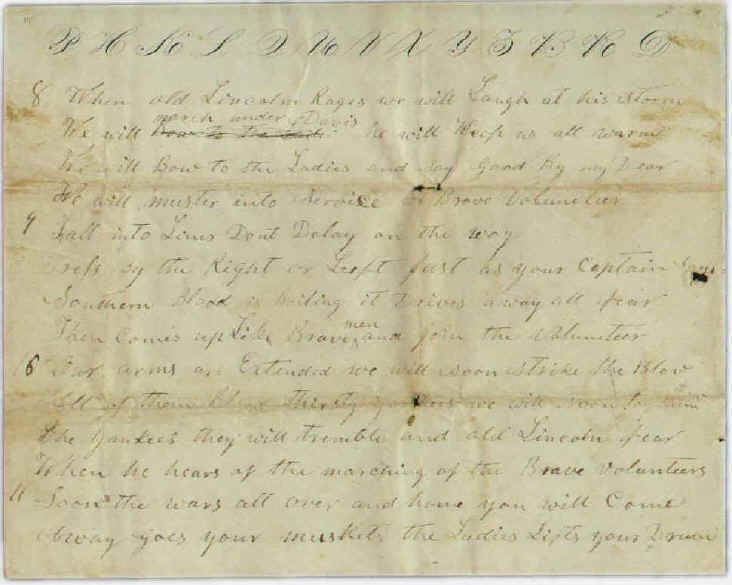 P H K L D W V X Y Z B R D
8 When old Lincolm Rages we will Laugh at his storm
march under Davis
We will Bow to the he will Keep us all warm
We will Bow to the Ladies and say good By my Dear
We will muster into Service of Brave Voluntier
9 Fall into Lines Dont Delay on the way
Dress by the Right or Left Just as your Captain Says
Southern Blood is boiling it Drives away all fear
Then Comes up Like Brave men and join the Volunteer
10 Our arms are Extended we will soon strike the Blow
All of them blood thirsty yankees we will soon
the yankees they will tremble and old Lincoln fear
When he hears of the marching of the Brave Volunteers
11 Soon the wars all over and home you will Come
Away goes your muskets the Ladies Lifts your Drum